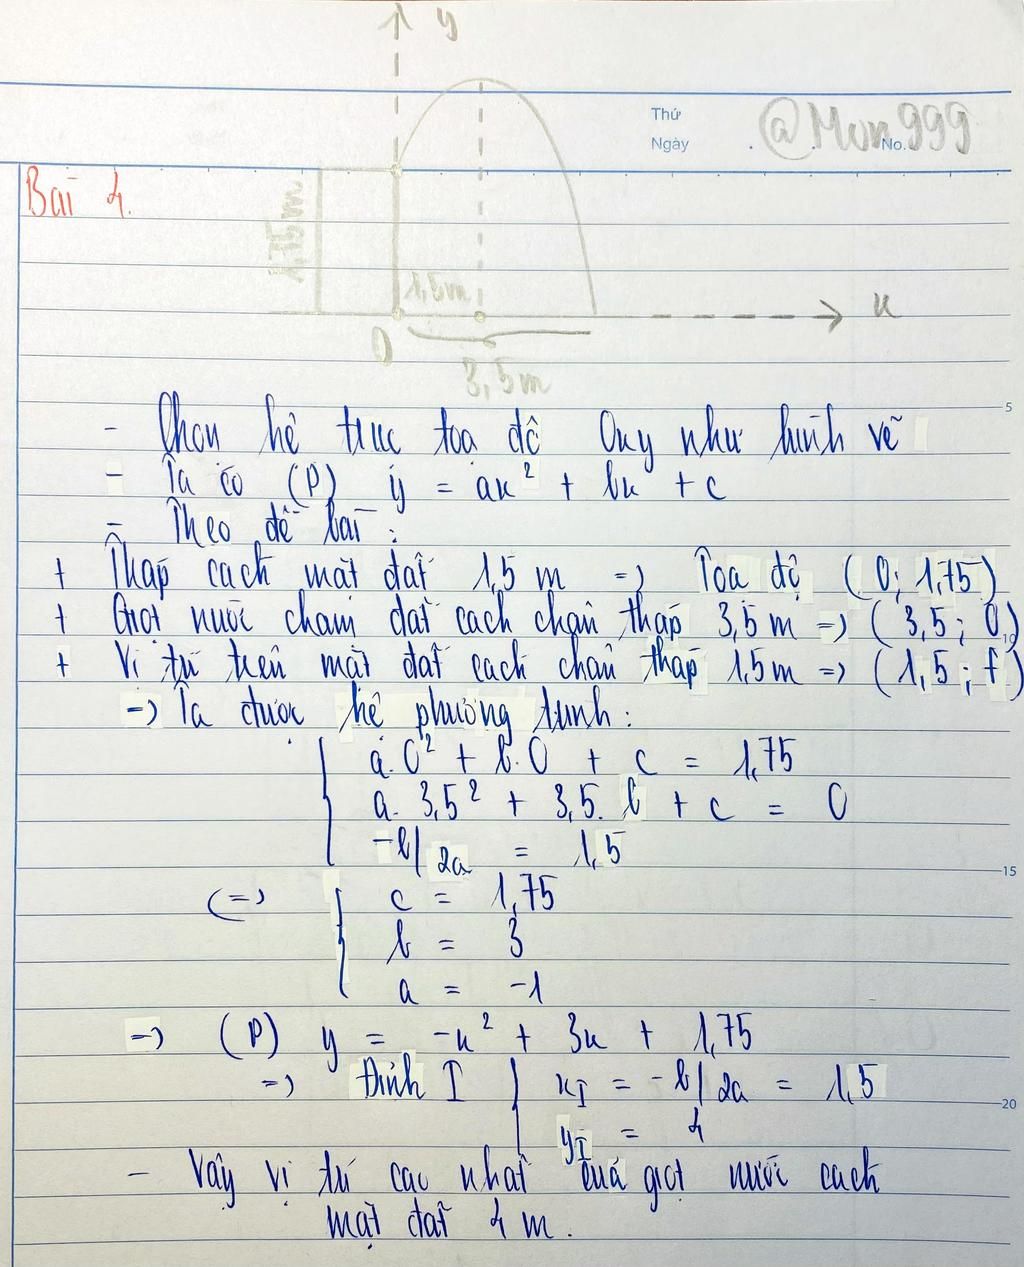 y
Thứ
Ngày
@Mun999
No.
Bài 4.
1,75m
1,5m
x
O
3,5m
5
- Chọn hệ trục tọa độ Oxy như hình vẽ
- Ta có (P) y = ax² + bx + c
- Theo đề bài :
+ Tháp cách mặt đất 1,5 m => Tọa độ (0; 1,75)
+ Giọt nước chạm đất cách chân tháp 3,5 m => (3,5; 0)
10
+ Vị trí trên mặt đất cách chân tháp 1,5m => (1,5; f)
=> Ta được hệ phương trình:
a.0² + b.0 + c = 1,75
a. 3,5² + 3,5. b + c = 0
-b/2a = 1,5
15
<=> c = 1,75
b = 3
a = -1
=> (P) y = -x² + 3x + 1,75
=> Đỉnh I x_I = -b/2a = 1,5
20
y_I = 4
- Vậy vị trí cao nhất của giọt nước cách
mặt đất 4 m.